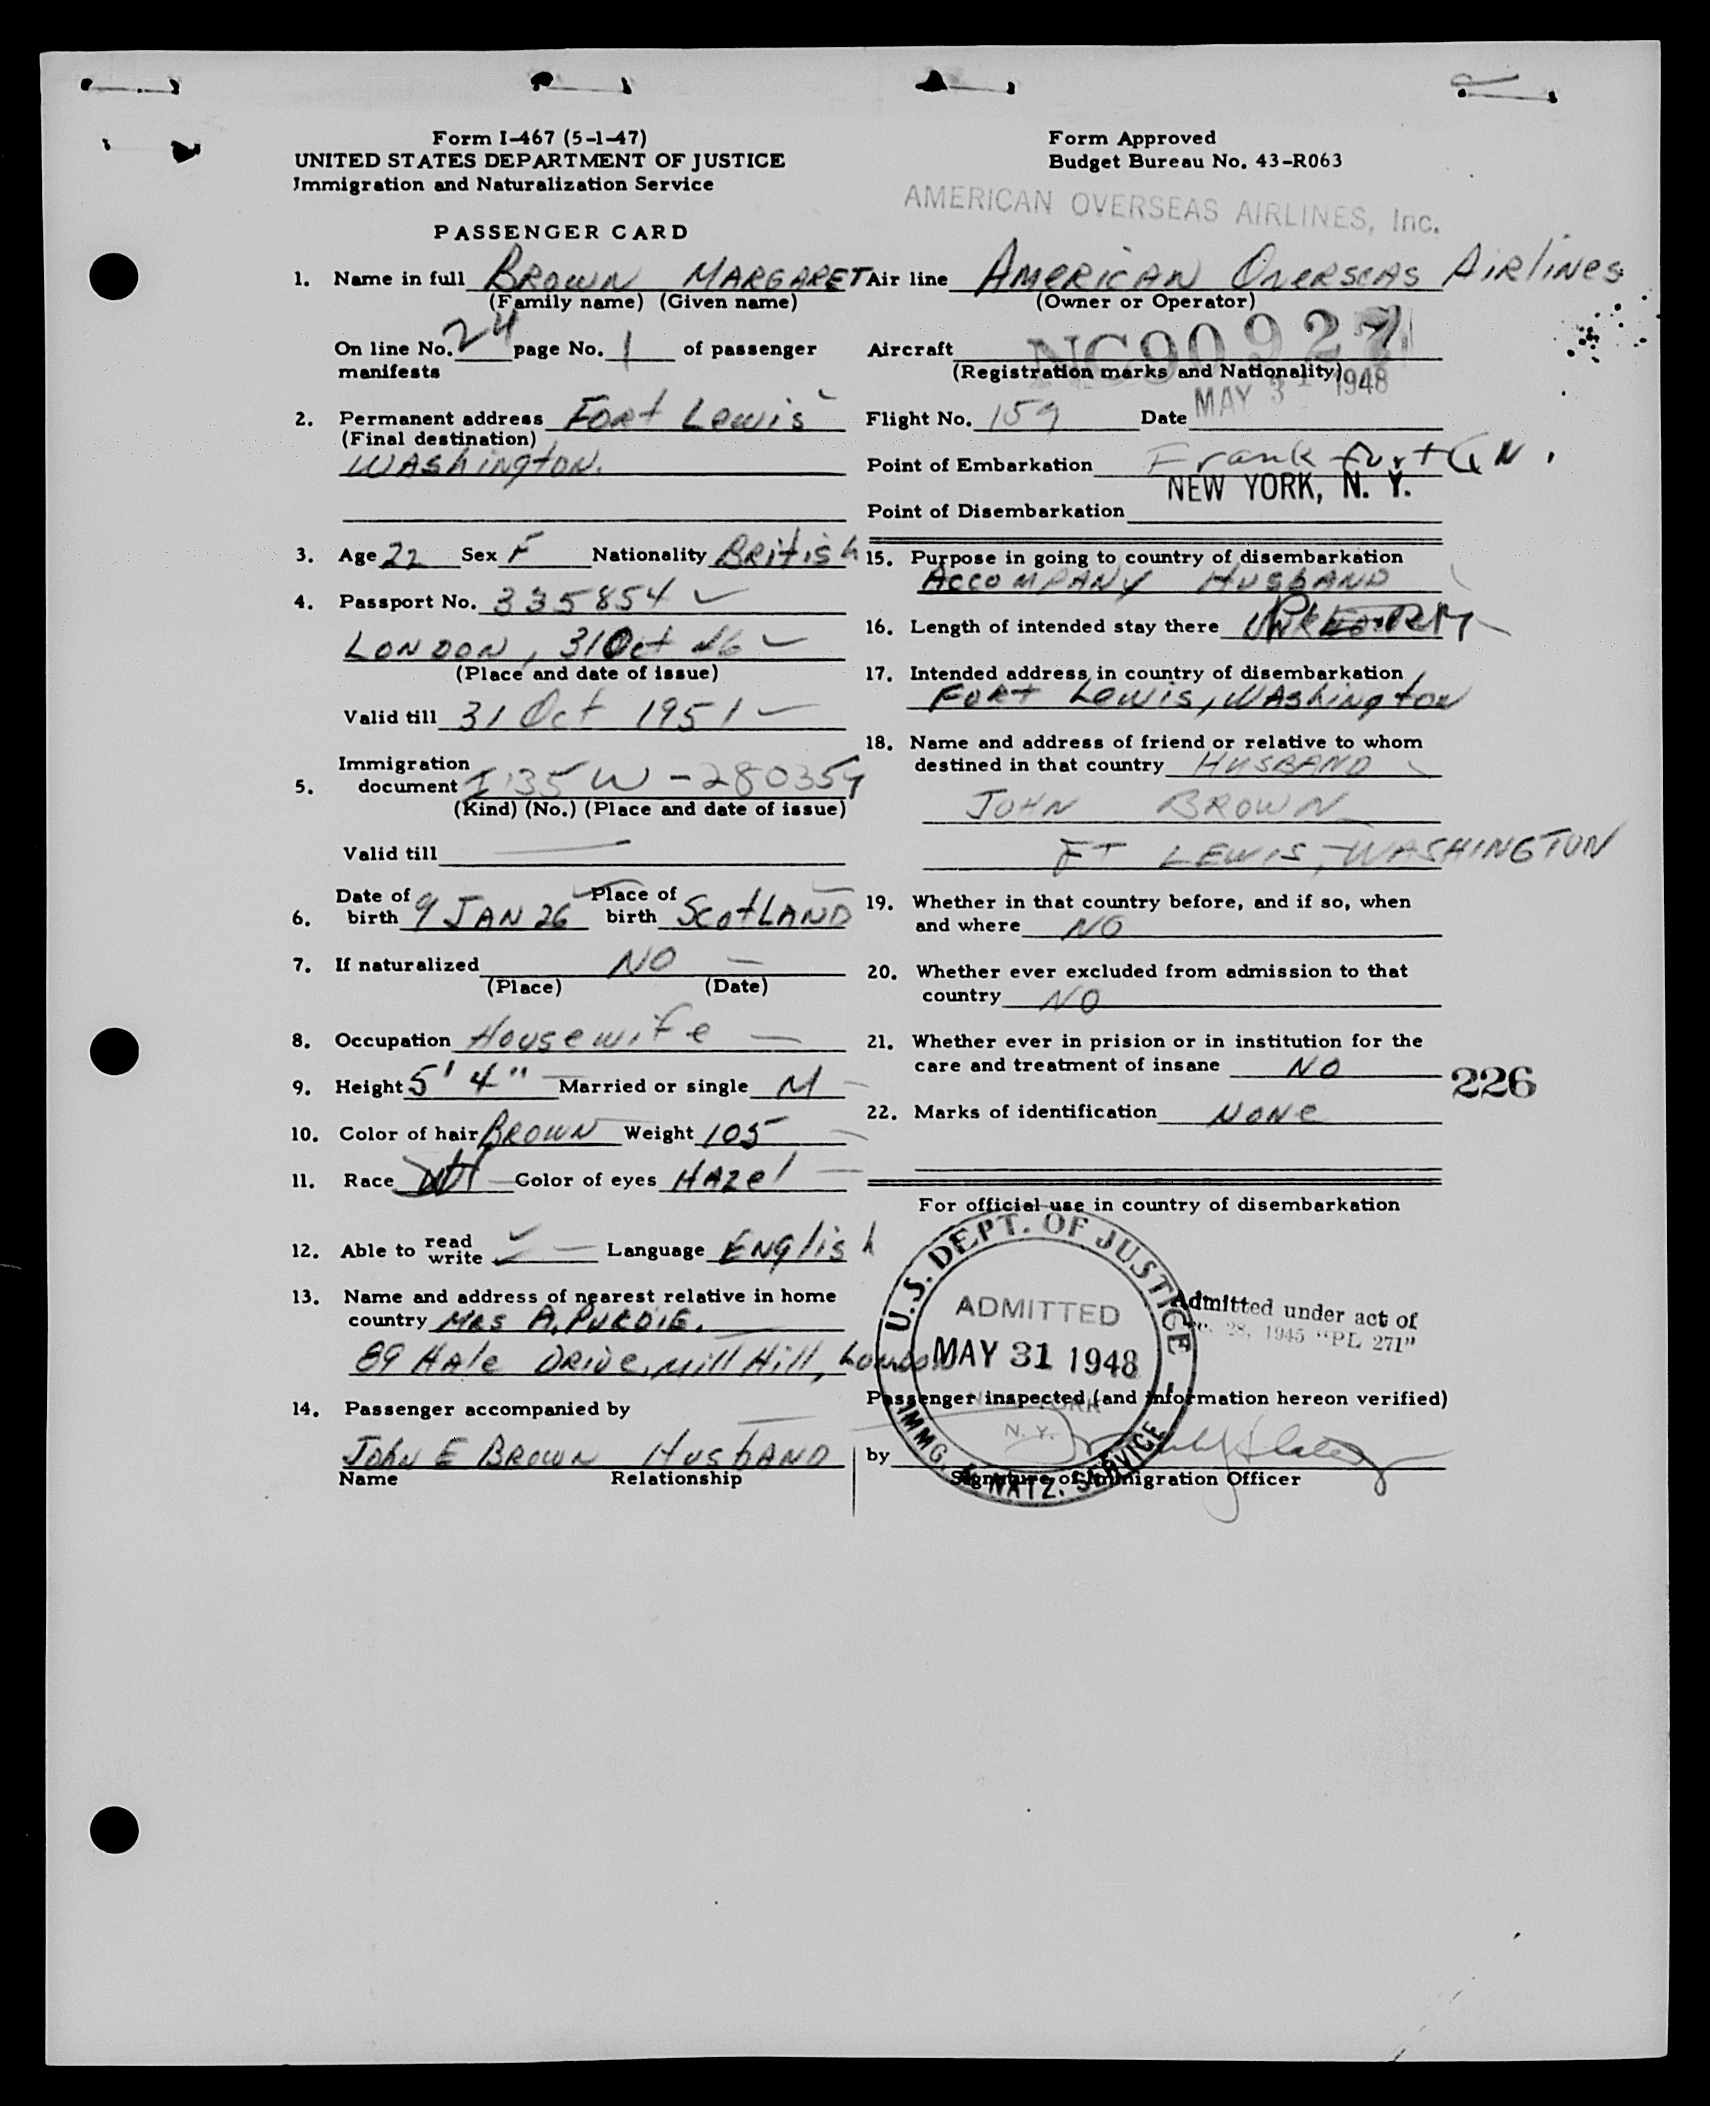 Form I-467 (5-1-47)
UNITED STATES DEPARTMENT OF JUSTICE
Immigration and Naturalization Service
PASSENGER CARD
1. Name in full BROWN MARGARET
(Family name) (Given name)
On line No. 24 page No. 1 of passenger
manifests
2. Permanent address Fort Lewis
(Final destination)
WASHINGTON.
3. Age 22 Sex F Nationality British
4. Passport No. 335854
LONDON, 31 Oct 46
(Place and date of issue)
Valid till 31 Oct 1951
Immigration
5. document I 135 W - 280359
(Kind) (No.) (Place and date of issue)
Valid till
Date of Place of
6. birth 9 JAN 26 birth SCOTLAND
7. If naturalized NO
(Place) (Date)
8. Occupation Housewife
9. Height 5' 4" Married or single M
10. Color of hair BROWN Weight 105
11. Race Color of eyes HAZel
12. Able to read write Language English
13. Name and address of nearest relative in home
country MRS A. PURDIE.
89 Hale Drive, Mill Hill, London
14. Passenger accompanied by
John E BROWN HUSBAND
Name Relationship
Form Approved
Budget Bureau No. 43-R063
AMERICAN OVERSEAS AIRLINES, Inc.
Air line AMERICAN OVERSEAS AIRlINES
(Owner or Operator)
Aircraft NC90927
(Registration marks and Nationality)
Flight No. 159 Date MAY 31 1948
Point of Embarkation Frankfurt GN.
NEW YORK, N. Y.
Point of Disembarkation
15. Purpose in going to country of disembarkation
ACCOMPANY HUSBAND
16. Length of intended stay there
17. Intended address in country of disembarkation
FORT Lewis, WAShington
18. Name and address of friend or relative to whom
destined in that country HUSBAND
JOHN BROWN
FT LEWIS, WASHINGTON
19. Whether in that country before, and if so, when
and where NO
20. Whether ever excluded from admission to that
country NO
21. Whether ever in prision or in institution for the
care and treatment of insane NO
226
22. Marks of identification NONE
For official use in country of disembarkation
U.S. DEPT. OF JUSTICE
ADMITTED
MAY 31 1948
N. Y.
IMMG. & NATZ. SERVICE
Admitted under act of
28, 1945 "PL 271"
Passenger inspected (and information hereon verified)
by
Signature of Immigration Officer